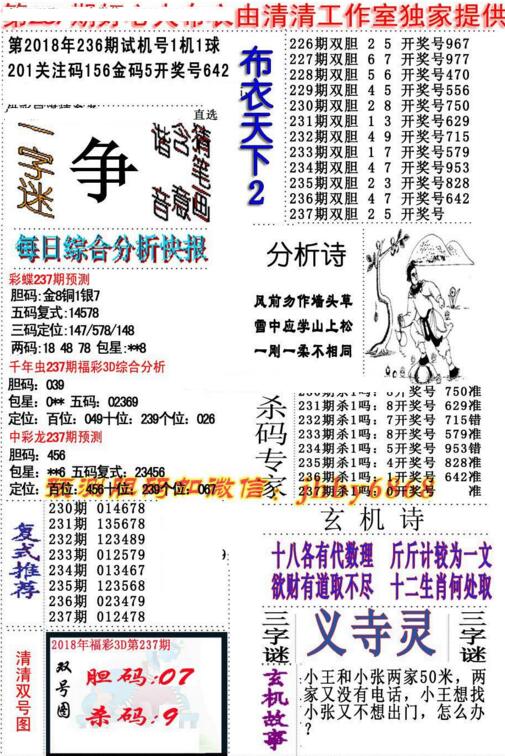 第237期好心人布衣由清清工作室独家提供
第2018年236期试机号1机1球
201关注码156金码5开奖号642
直选
一字迷
争
猜笔画
含意
谐音
布衣天下2
226期双胆 2 5 开奖号967
227期双胆 6 7 开奖号977
228期双胆 5 6 开奖号470
229期双胆 4 5 开奖号556
230期双胆 2 8 开奖号750
231期双胆 1 3 开奖号629
232期双胆 4 9 开奖号715
233期双胆 1 7 开奖号579
234期双胆 4 7 开奖号953
235期双胆 2 3 开奖号828
236期双胆 4 7 开奖号642
237期双胆 2 5 开奖号
每日综合分析快报
彩蝶237期预测
胆码:金8铜1银7
五码复式:14578
三码定位:147/578/148
两码:18 48 78 包星:**8
千年虫237期福彩3D综合分析
胆码: 039
包星: 0** 五码: 02369
定位: 百位: 049十位: 239个位: 026
中彩龙237期预测
胆码: 456
包星: **6 五码复式: 23456
定位: 百位: 456十位: 239个位: 067
分析诗
风前勿作墙头草
雪中应学山上松
一刚一柔不相同
杀码专家
230期杀1吗: 6开奖号 750准
231期杀1吗: 8开奖号 629准
232期杀1吗: 7开奖号 715错
233期杀1吗: 8开奖号 579准
234期杀1吗: 5开奖号 953错
235期杀1吗: 4开奖号 828准
236期杀1吗: 1开奖号 642准
237期杀1吗: 0开奖号 准
复式推荐
230期 014678
231期 135678
232期 123489
233期 012579
234期 013467
235期 123568
236期 023479
237期 012478
玄机诗
十八各有代数理 斤斤计较为一文
欲财有道取不尽 十二生肖何处取
三字谜
义寺灵
三字谜
清清双号图
2018年福彩3D第237期
双号图
胆码:07
杀码:9
玄机故事
小王和小张两家50米，两
家又没有电话，小王想找
小张又不想出门，怎么办
？